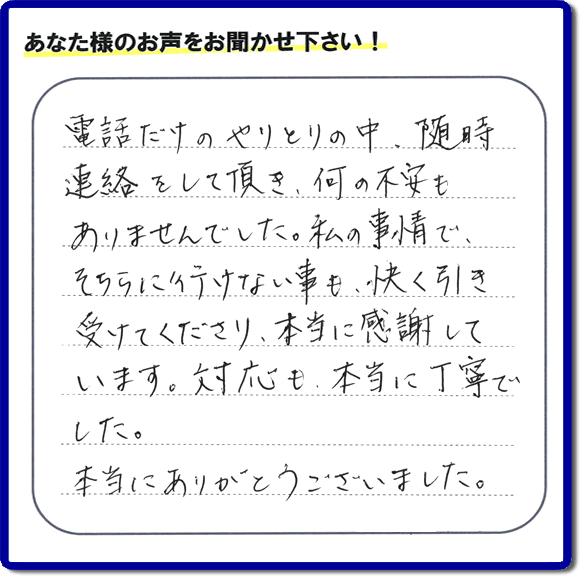 あなた様のお声をお聞かせ下さい！
電話だけのやりとりの中、随時
連絡をして頂き、何の不安も
ありませんでした。私の事情で、
そちらに行けない事も、快く引き
受けてくださり、本当に感謝して
います。対応も、本当に丁寧で
した。
本当にありがとうございました。